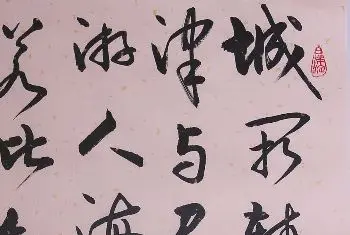 城阙辅
津与君
游人海
若比